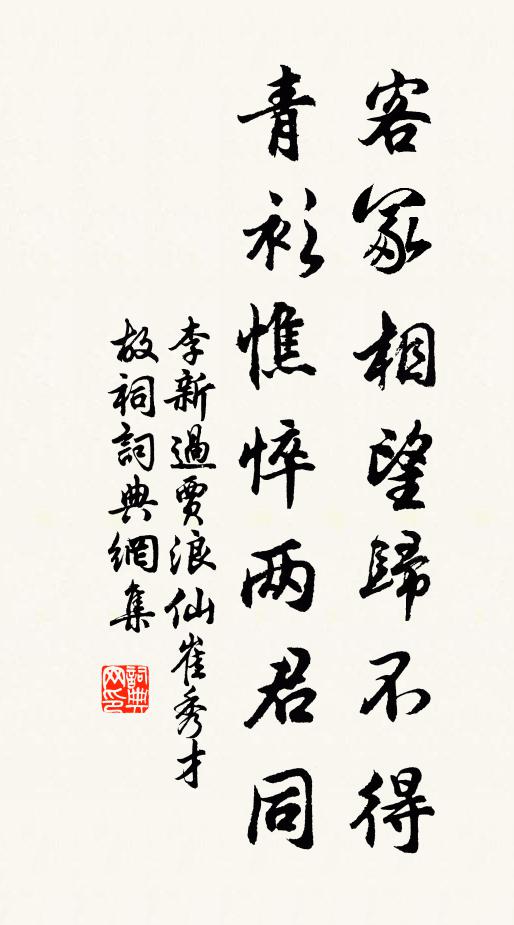 客冢相望歸不得
青衫憔悴两君同
李新過賈浪仙崔秀才
故祠詞典網集
詞典网印